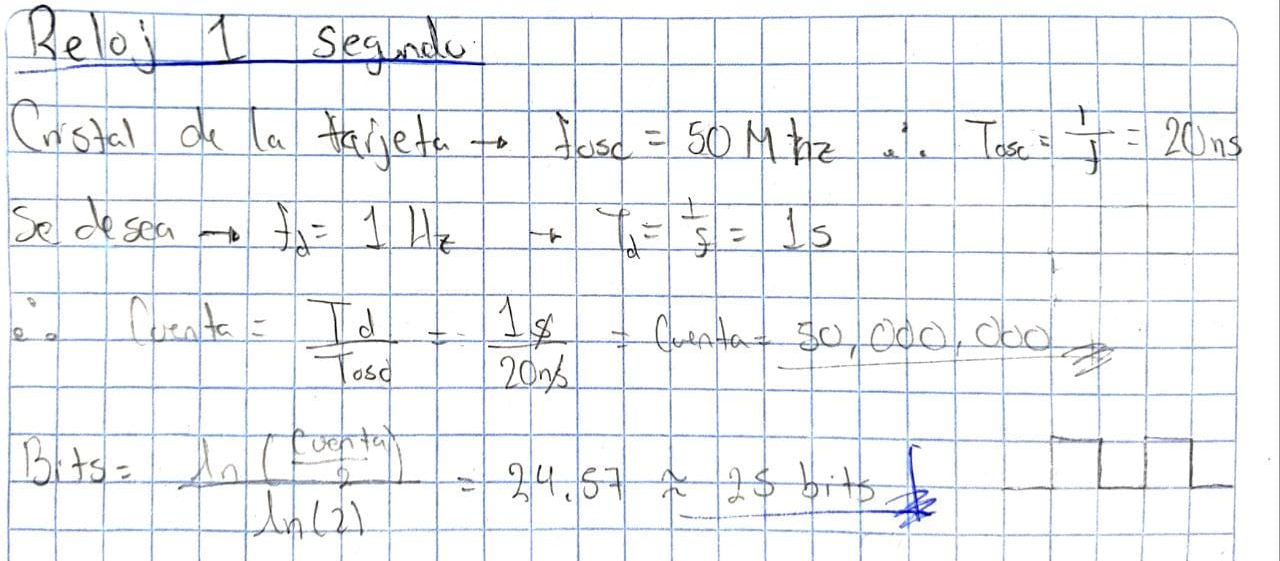 Reloj 1 segundo
Cristal de la tarjeta → fosc = 50 Mhz ∴ Tosc = 1/f = 20ns
Se desea → fd = 1 Hz → Td = 1/f = 1s
∴ Cuenta = Td/Tosc = 1s/20ns = Cuenta = 50,000,000
Bits = ln(Cuenta/2)/ln(2) = 24.57 ≈ 25 bits